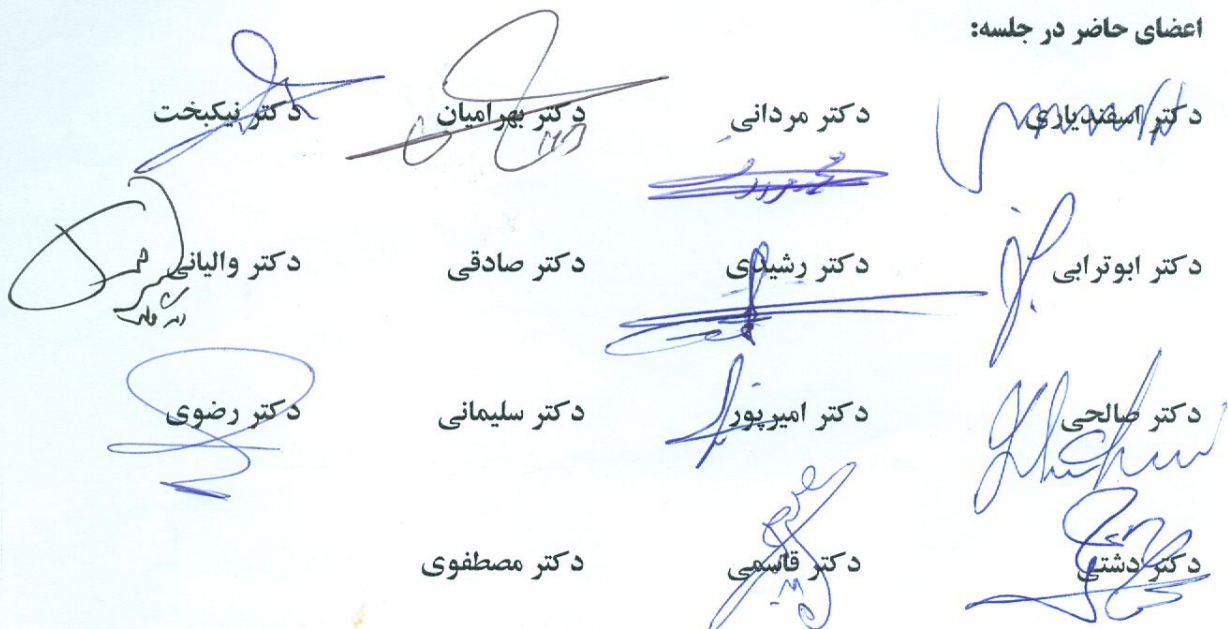 اعضای حاضر در جلسه:
دکتر اسفندیاری دکتر مردانی دکتر بهرامیان دکتر نیکبخت
دکتر ابوترابی دکتر رشیدی دکتر صادقی دکتر والیانی
دکتر صالحی دکتر امیرپور دکتر سلیمانی دکتر رضوی
دکتر دشتی دکتر قاسمی دکتر مصطفوی